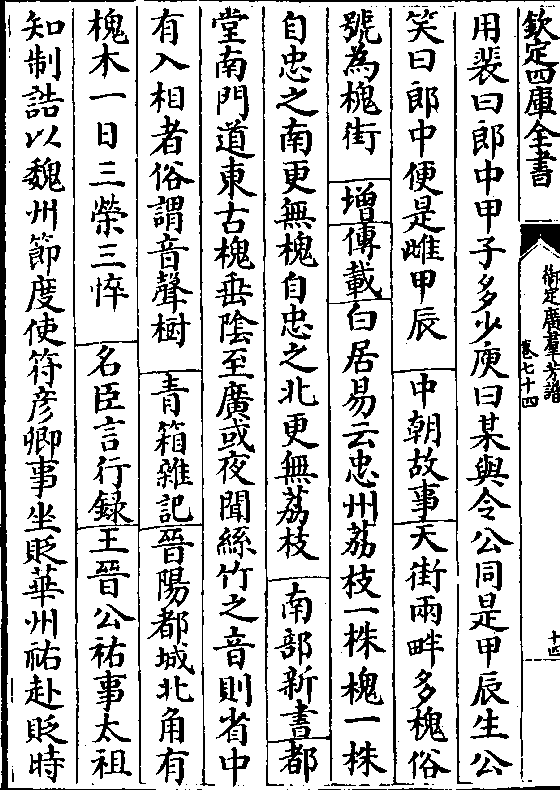 欽定四庫全書
御定廣羣芳譜
卷七十四
十四
用裴曰郎中甲子多少庾曰某與令公同是甲辰生公
笑曰郎中便是雌甲辰　中朝故事天街兩畔多槐俗
號為槐街　增傳載白居易云忠州荔枝一株槐一株
自忠之南更無槐自忠之北更無荔枝　南部新書都
堂南門道東古槐垂陰至廣或夜聞絲竹之音則省中
有入相者俗謂音聲樹　青箱雜記晉陽都城北角有
槐木一日三榮三悴　名臣言行録王晉公祐事太祖
知制誥以魏州節度使符彥卿事坐貶華州祐赴貶時